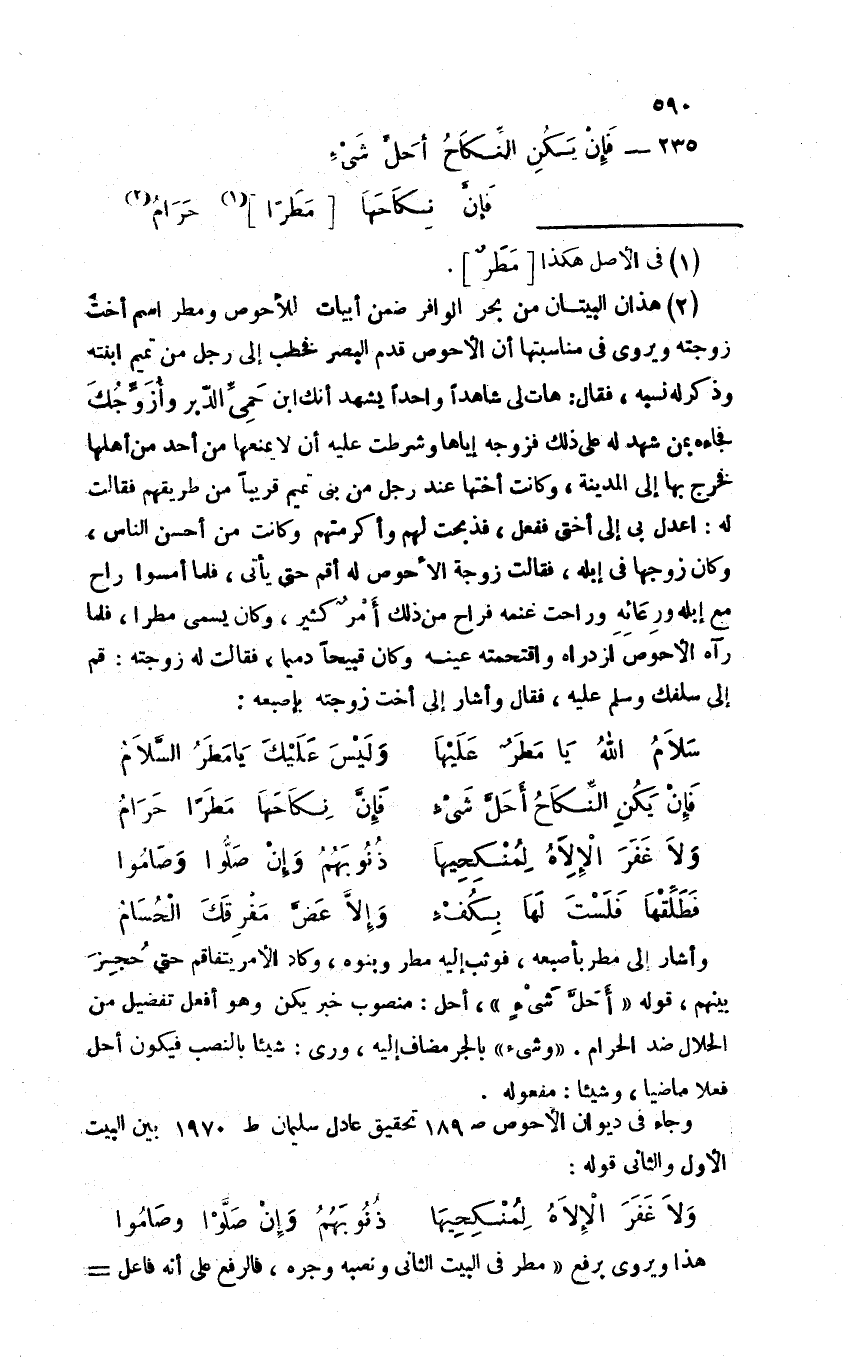 ٥٩٠
٢٣٥ — فَإِنْ يَكُنِ النِّكَاحُ أَحَلَّ شَيْءٍ
فَإِنَّ نِكَاحَهَا [ مَطَرًا ](١) حَرَامُ(٢)
(١) فى الأصل هكذا [ مَطَرٌ ] .
(٢) هذان البيتان من بحر الوافر ضمن أبيات للأحوص ومطر اسم أخت
زوجته ويروى فى مناسبتها أن الأحوص قدم البصر فخطب إلى رجل من تميم ابنته
وذكر له نسبه ، فقال: هات لى شاهداً واحداً يشهد أنك ابن حَمِىِّ الدّبر وأُزَوِّجُكَ
فجاءه بمن شهد له على ذلك فزوجه إياها وشرطت عليه أن لا يمنعها من أحد من أهلها
فخرج بها إلى المدينة ، وكانت أختها عند رجل من بنى تميم قريباً من طريقهم فقالت
له : اعدل بى إلى أختى ففعل ، فذبحت لهم وأكرمتهم وكانت من أحسن الناس ،
وكان زوجها فى إبله ، فقالت زوجة الأحوص له أقم حتى يأتى ، فلما أمسوا راح
مع إبله ورِعَائِه وراحت غنمه فراح من ذلك أَمْرٌ كثير ، وكان يسمى مطرا ، فلما
رآه الأحوص ازدراه واقتحمته عينه وكان قبيحاً دميما ، فقالت له زوجته : قم
إلى سلفك وسلم عليه ، فقال وأشار إلى أخت زوجته بإصبعه :
سَلاَمُ اللهُ يَا مَطَرٌ عَلَيْهَا وَلَيْسَ عَلَيْكَ يَامَطَرُ السَّلاَمُ
فَإِنْ يَكُنِ النِّكَاحُ أَحَلَّ شَيْءٍ فَإِنَّ نِكَاحَهَا مَطَرًا حَرَامُ
وَلاَ غَفَرَ الْإِلاَهُ لِمُنْكِحِيهَا ذُنُوبَهُمُ وَإِنْ صَلُّوا وَصَامُوا
فَطَلِّقْهَا فَلَسْتَ لَهَا بِكُفْءٍ وَإِلاَّ عَضَّ مَفْرِقَكَ الْحُسَامُ
وأشار إلى مطر بأصبعه ، فوثب إليه مطر وبنوه ، وكاد الأمر يتفاقم حتى حُجِزَ
بينهم ، قوله « أَحَلَّ شَىْءٍ » ، أحل : منصوب خبر يكن وهو أفعل تفضيل من
الحلال ضد الحرام . «وشىء» بالجر مضاف إليه ، ورى : شيئا بالنصب فيكون أحل
فعلا ماضيا ، وشيئا : مفعوله .
وجاء فى ديوان الأحوص صـ ١٨٩ تحقيق عادل سليمان ط ١٩٧٠ بين البيت
الأول والثانى قوله :
وَلاَ غَفَرَ الْإِلاَهُ لِمُنْكِحِيهَا ذُنُوبَهُمُ وَإِنْ صَلَّوْا وصَامُوا
هذا ويروى برفع « مطر فى البيت الثانى ونصبه وجره ، فالرفع على أنه فاعل =